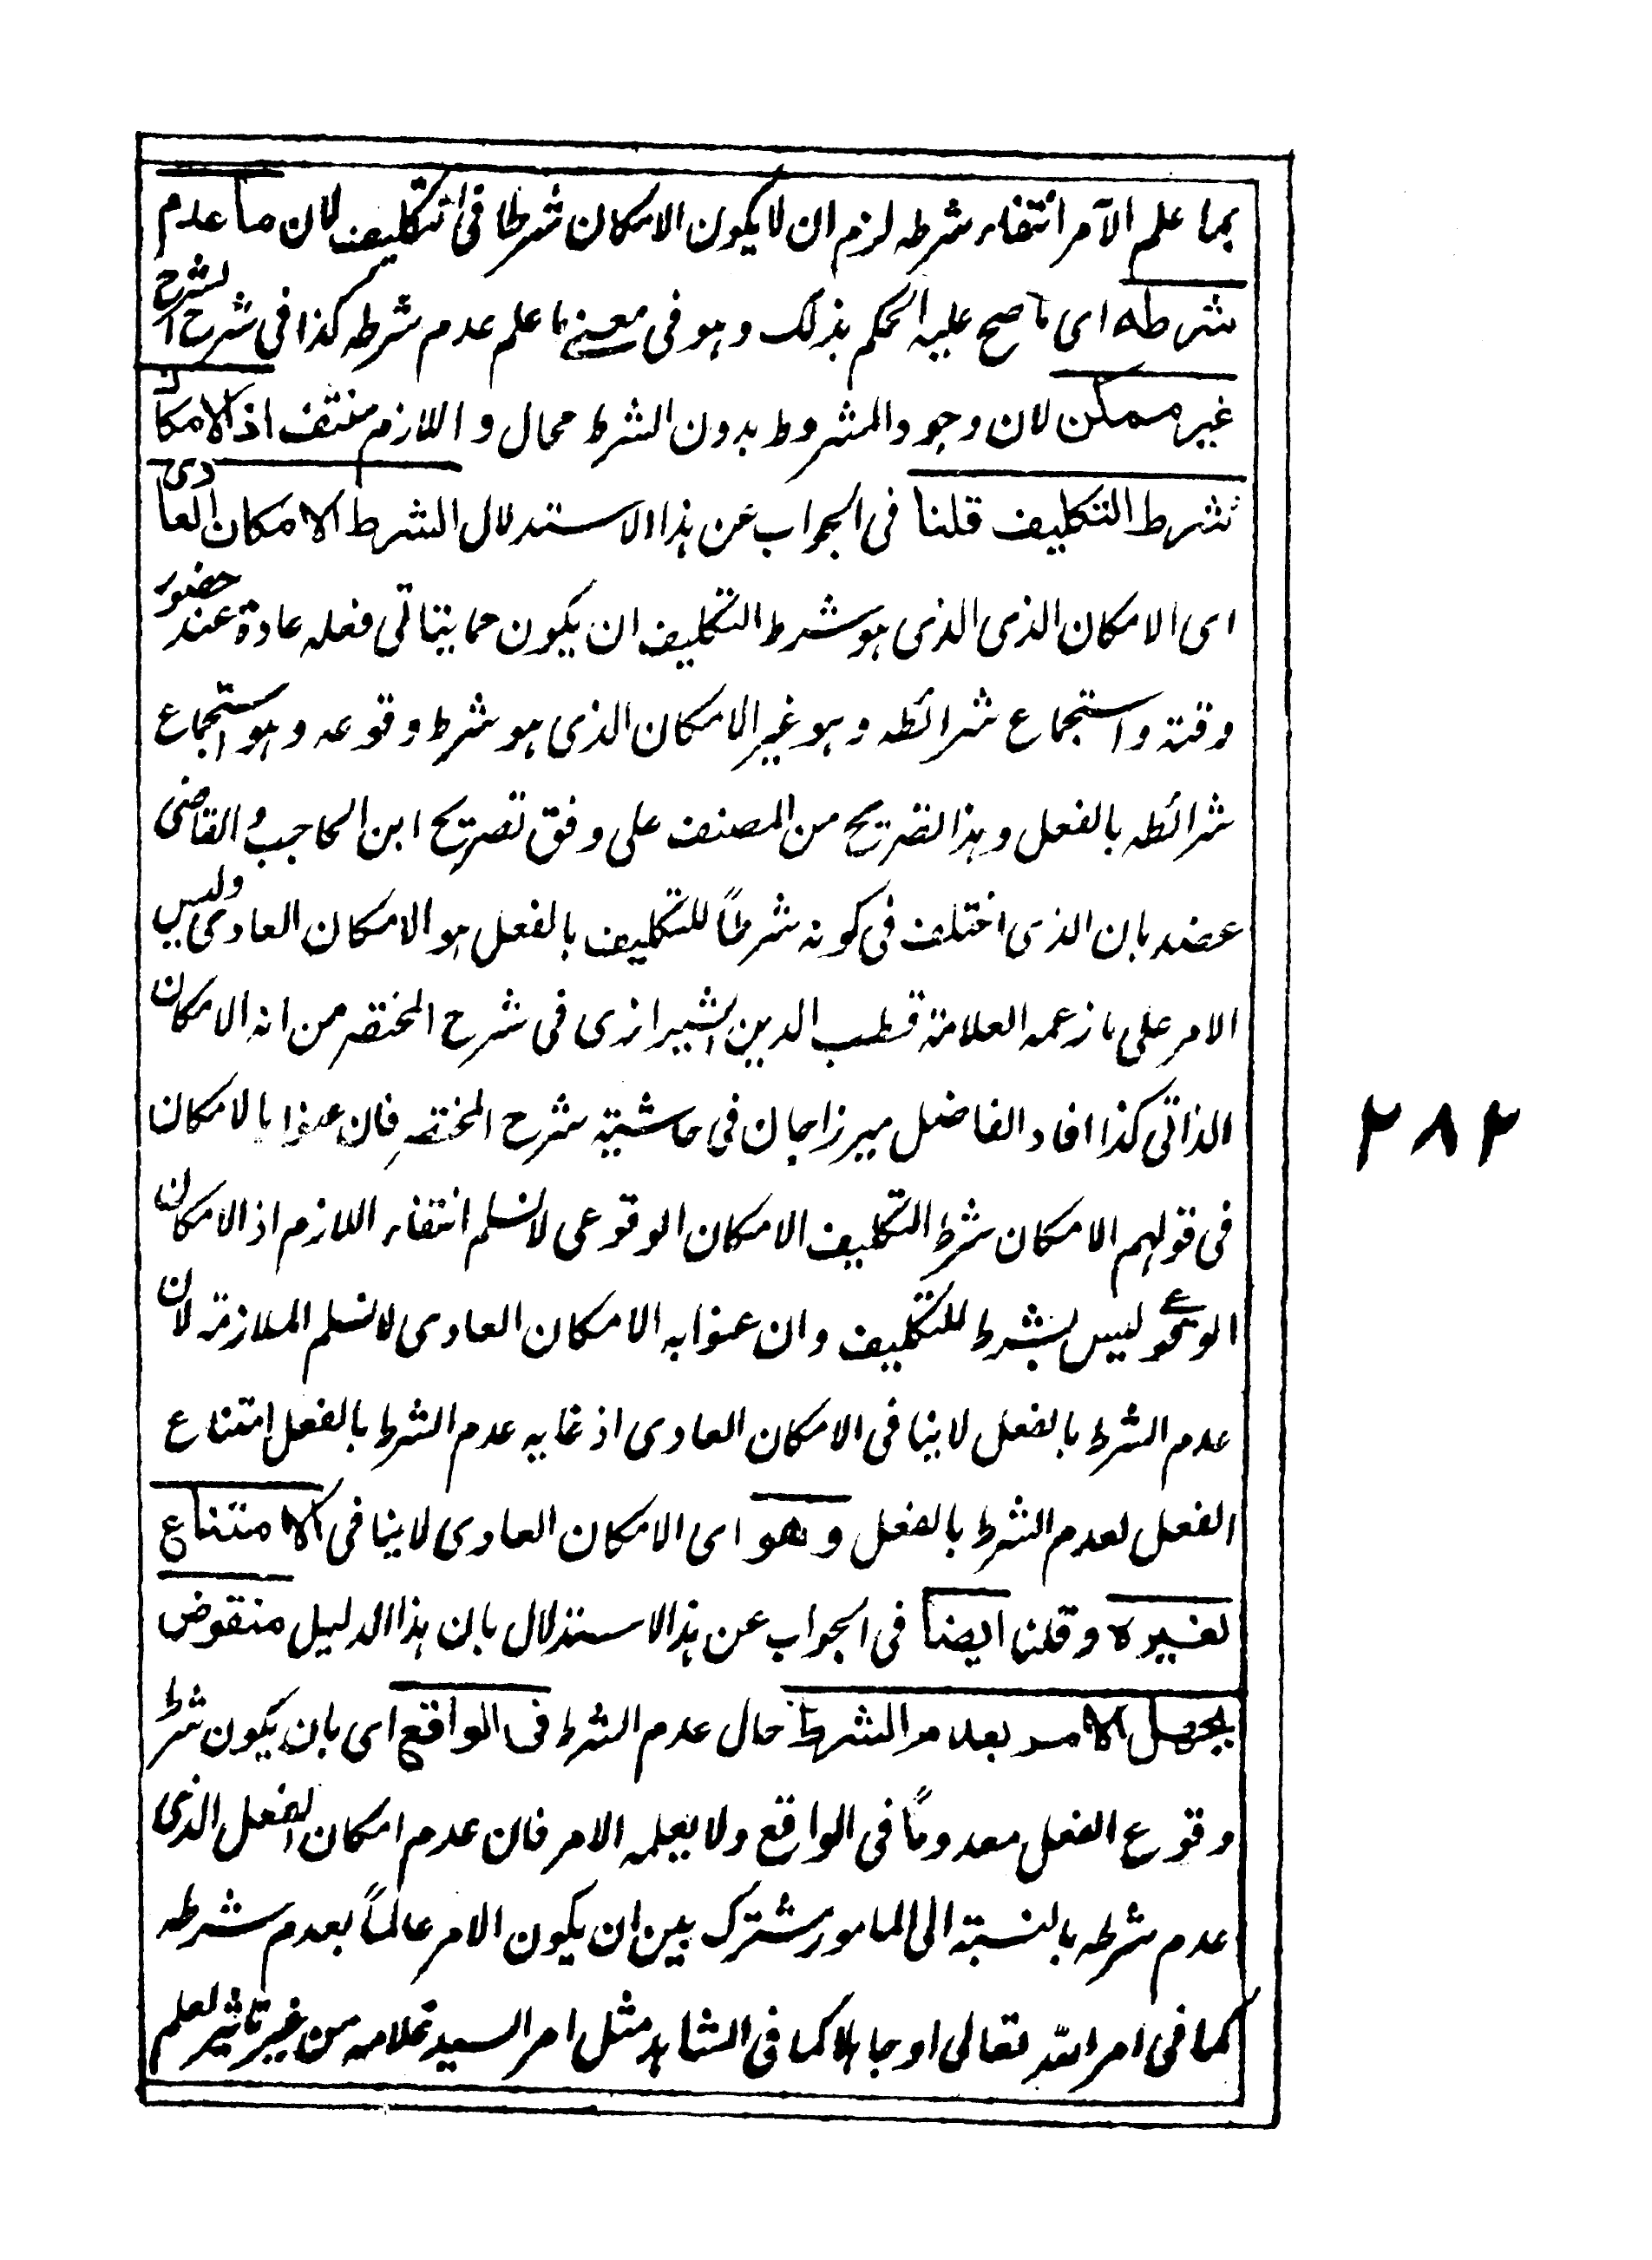 بما علم الآمر انتفاء شرطه لزم ان لا يكون الامكان شرطا فى التكليف لان ما عدم
شرطه اى ما صح عليه الحكم بذلك وهو فى معنى ما علم عدم شرطه كذا فى شرح الشرح
غير ممكن لان وجود المشروط بدون الشرط محال واللازم منتف اذ الامكان
شرط التكليف قلنا فى الجواب عن هذا الاستدلال الشرط الامكان العادى
اى الامكان الذى الذى هو شرط التكليف ان يكون مما يتاتى فعله عادة عند حضور
وقته واستجماع شرائطه وهو غير الامكان الذى هو شرط وقوعه وهو استجماع
شرائطه بالفعل وهذا تصريح من المصنف على وفق تصريح ابن الحاجب والقاضى
عضد بان الذى اختلف فى كونه شرطاً للتكليف بالفعل هو الامكان العادى وليس
الامر على ما زعمه العلامة قطب الدين الشيرازى فى شرح المختصر من انه الامكان
الذاتى كذا افاد الفاضل ميرزاجان فى حاشية شرح المختصر فان عنوا بالامكان
فى قولهم الامكان شرط التكليف الامكان الوقوعى لا نسلم انتفاء اللازم اذ الامكان
الوقوعى ليس بشرط للتكليف وان عنوا به الامكان العادى لا نسلم الملازمة لان
عدم الشرط بالفعل لا ينافى الامكان العادى اذ غايه عدم الشرط بالفعل امتناع
الفعل لعدم الشرط بالفعل وهو اى الامكان العادى لا ينافى الامتناع
لغيره وقلنا ايضا فى الجواب عن هذا الاستدلال بان هذا الدليل منقوض
بجهل الامر بعدم الشرط حال عدم الشرط فى الواقع اى بان يكون شرط
وقوع الفعل معدوماً فى الواقع ولا يعلمه الامر فان عدم امكان الفعل الذى
عدم شرطه بالنسبة الى المامور مشترك بين ان يكون الامر عالماً بعدم شرطه
كما فى امر الله تعالى او جاهلا كما فى الشاهد مثل امر السيد غلامه من غير تاثير لعلم
٢٨٢